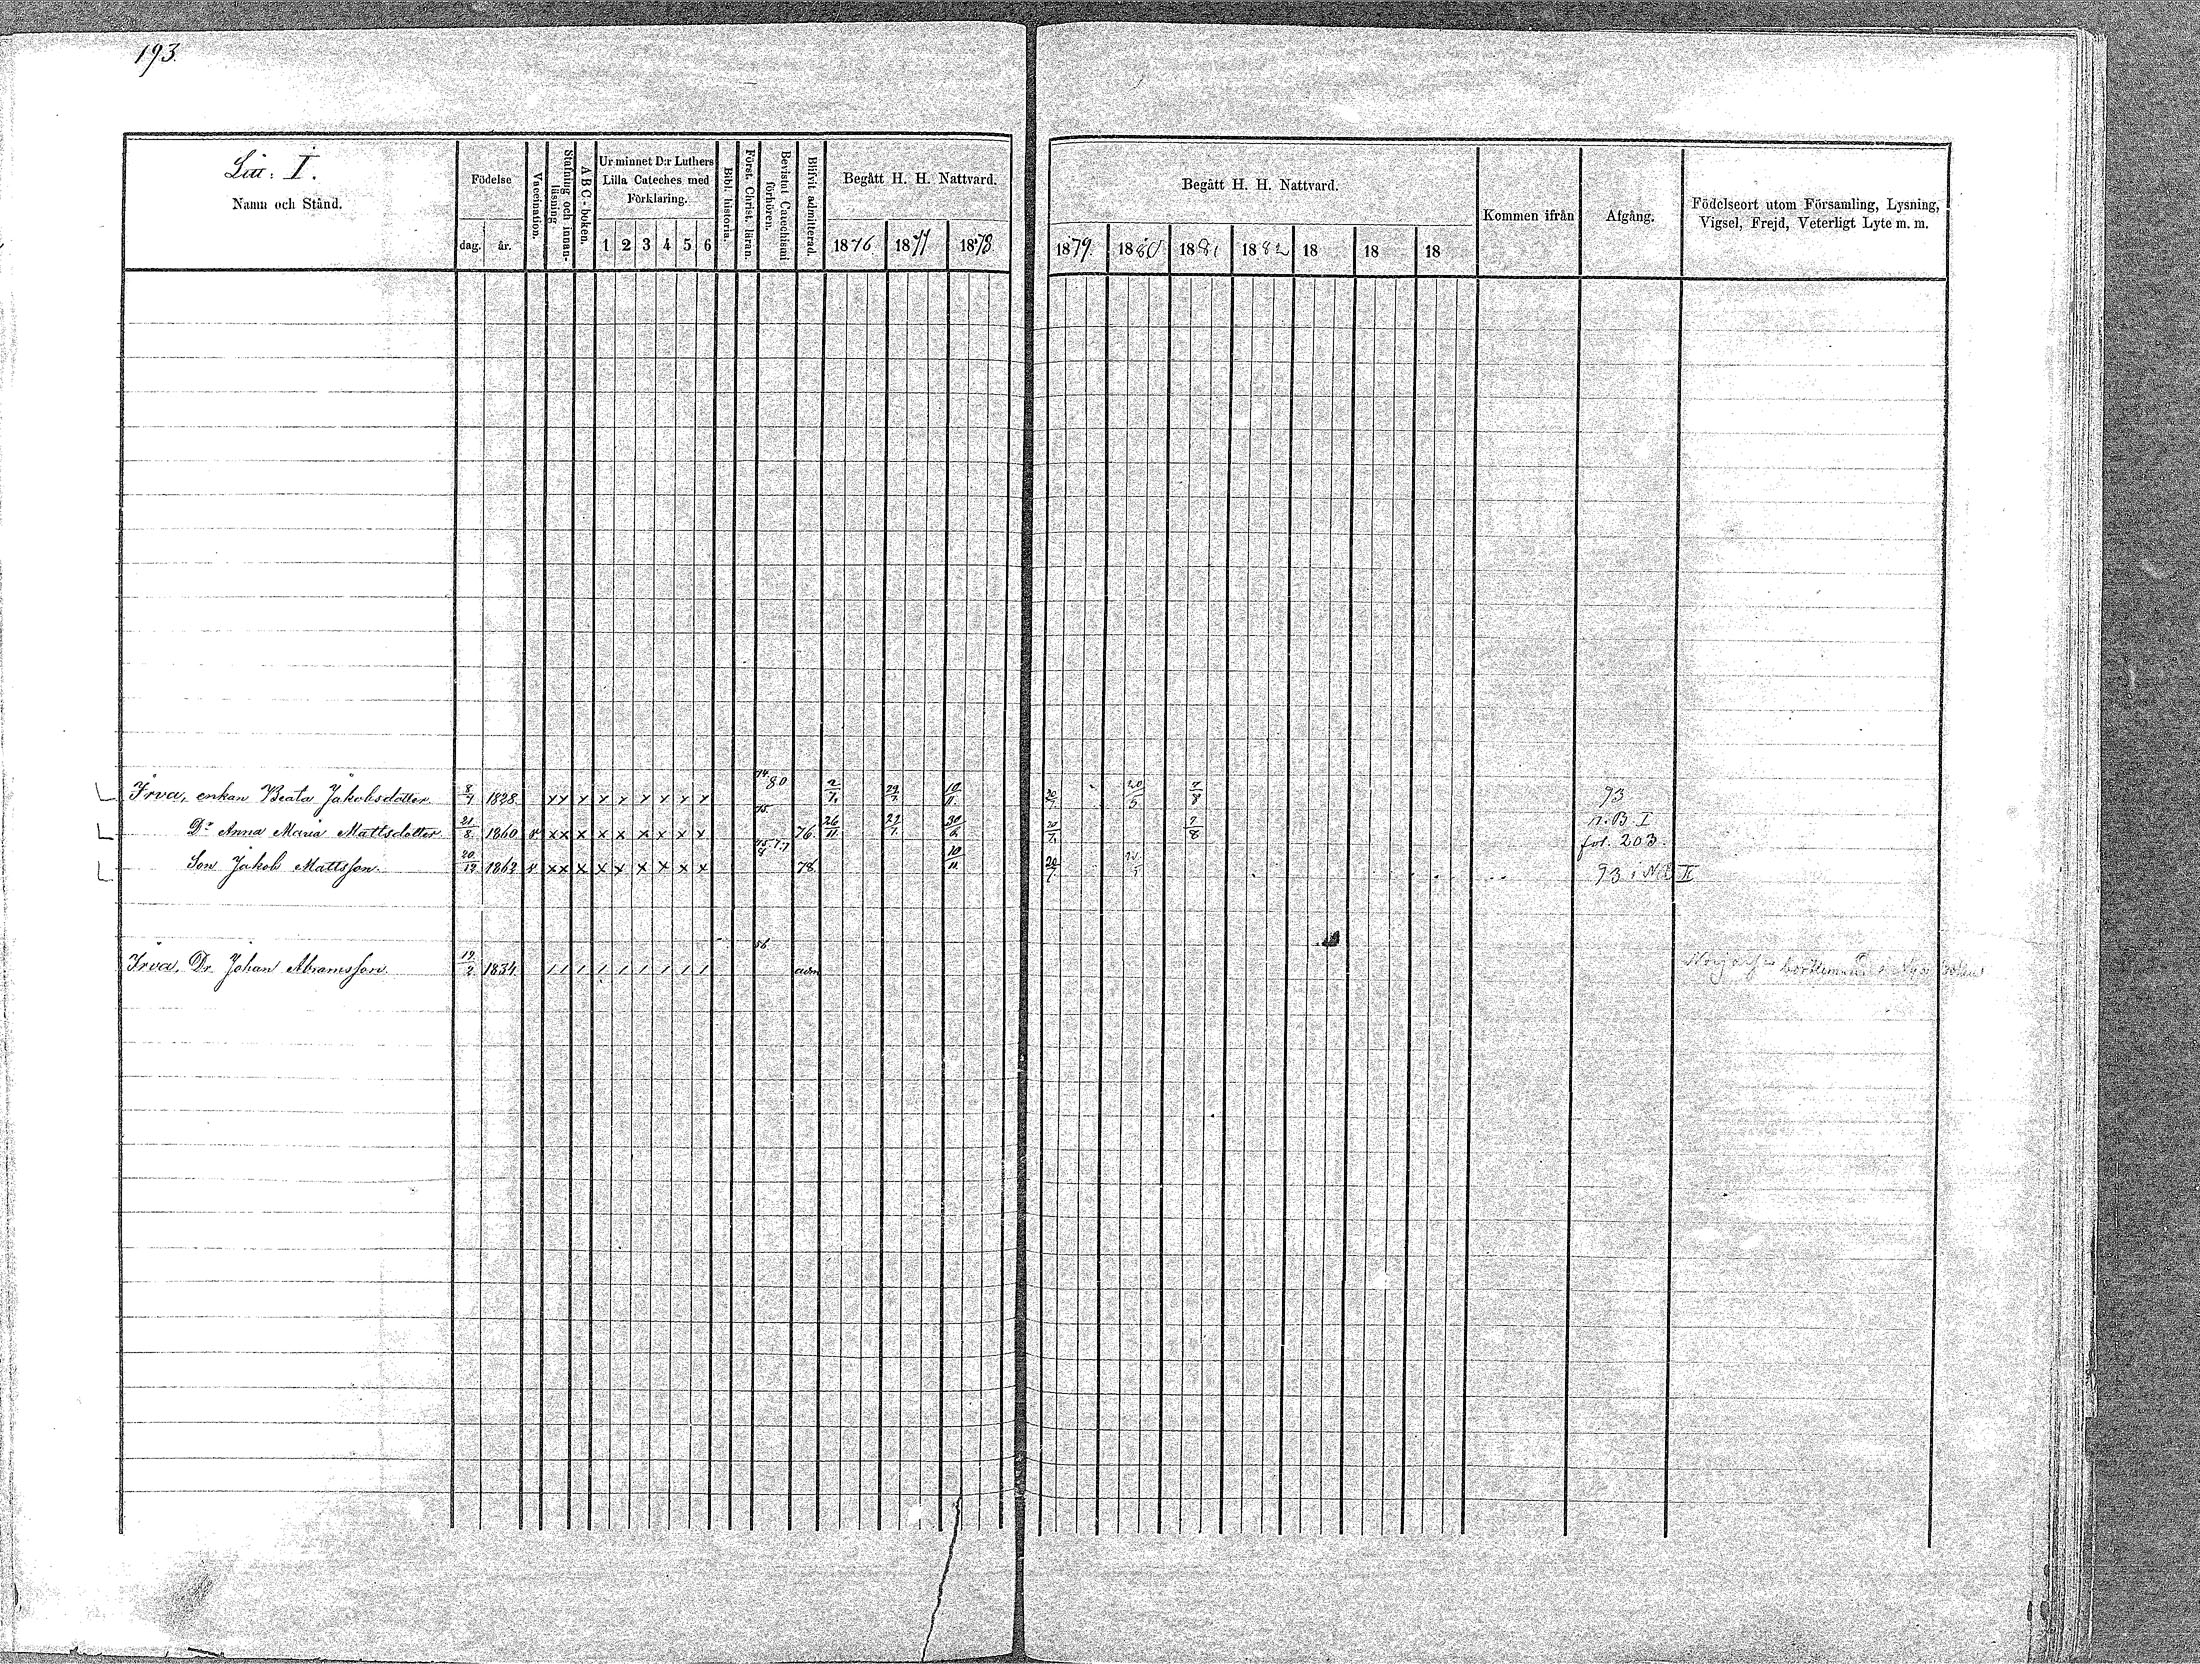 193.
Litt: I.
Namn och Stånd.
Födelse
dag. år.
Vaccination.
Stafning och innanläsning
A B C-boken.
Ur minnet D:r Luthers
Lilla Cateches med
Förklaring.
1 2 3 4 5 6
Bibl. historia.
Först. Christ. läran.
Bevistat Catechismi förhören.
Blifvit admitterad.
Begått H. H. Nattvard.
1876. 1877 1878
Begått H. H. Nattvard.
1879. 1880 1881 1882 18 18 18
Kommen ifrån
Afgång.
Födelseort utom Församling, Lysning,
Vigsel, Frejd, Veterligt Lyte m. m.
Irva, enkan Beata Jakobsdotter 8/7 1828 x x x x x x x x x 74. 80 2/7. 29/7. 10/11. 20/7 20/5 7/8 93
Dr Anna Maria Mattsdotter 21/8. 1860 v x x x x x x x x x 75. 76. 26/11. 29/7. 20/7. 7/8 n. B I
fol. 203.
Son Jakob Mattsson. 20/12 1862 v x x x x x x x x x 78. 10/11. 20/7 93 i NB II
Irva, Dr Johan Abramsson. 19/2 1834 / / / / / / / / / 56 adm